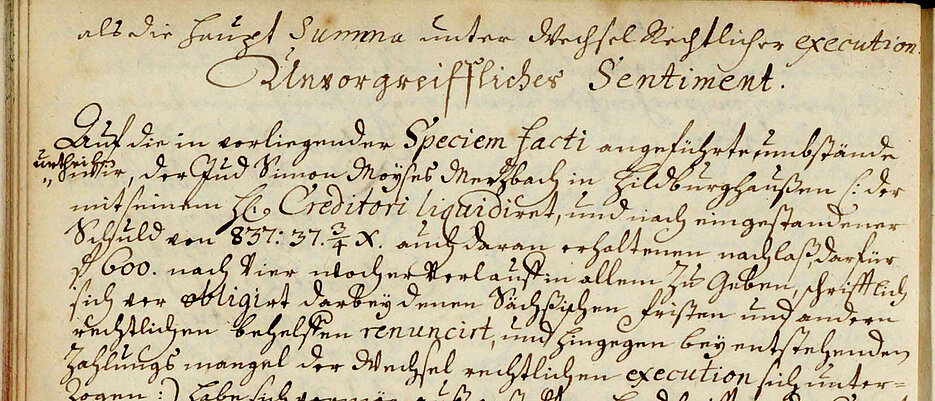 als die Haupt Summa unter Wechsel Rechtlicher execution.
Unvorgreiffliches Sentiment.
Auf die in vorliegender Speciem facti angeführte umbstände
urtheilen
wir, der Jud Simon Moyses Merzbach in Hildburghaußen /: der
mit seinem H. Creditori liquidiret, und nach eingestandener
Schuld von 837: 37. 3/4 X. auch daran erhaltenen nachlaß, darfür
f 600. nach Vier wochen Verlauff in allem zu geben, schrifftlich
sich ver obligirt darbey denen Sächßischen fristen und andern
rechtlichen behelffen renuncirt, und hingegen bey entstehenden
Zahlungs mangel der Wechsel rechtlichen execution sich unter-
zogen :/ habe sich